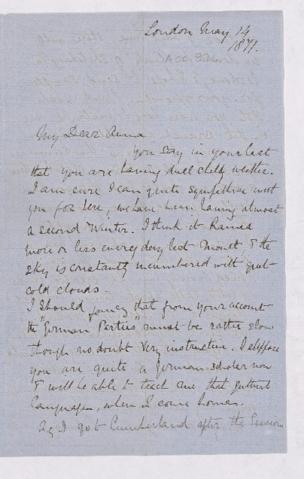 London May 14
1877.
My Dear Anna
You say in your last
that you are having dull chilly weather.
I am sure I can quite sympathise with
you for here, we have been having almost
a second Winter. I think it Rained
more or less every day last Month & the
sky is constantly incumbered with great
cold clouds.
I should fancy that from your account
the "German Parties" must be rather slow
though no doubt very instructive. I suppose
you are quite a German scholar now
& will be able to teach me that guttural
language, when I come home.
As I go to Cumberland after the Session